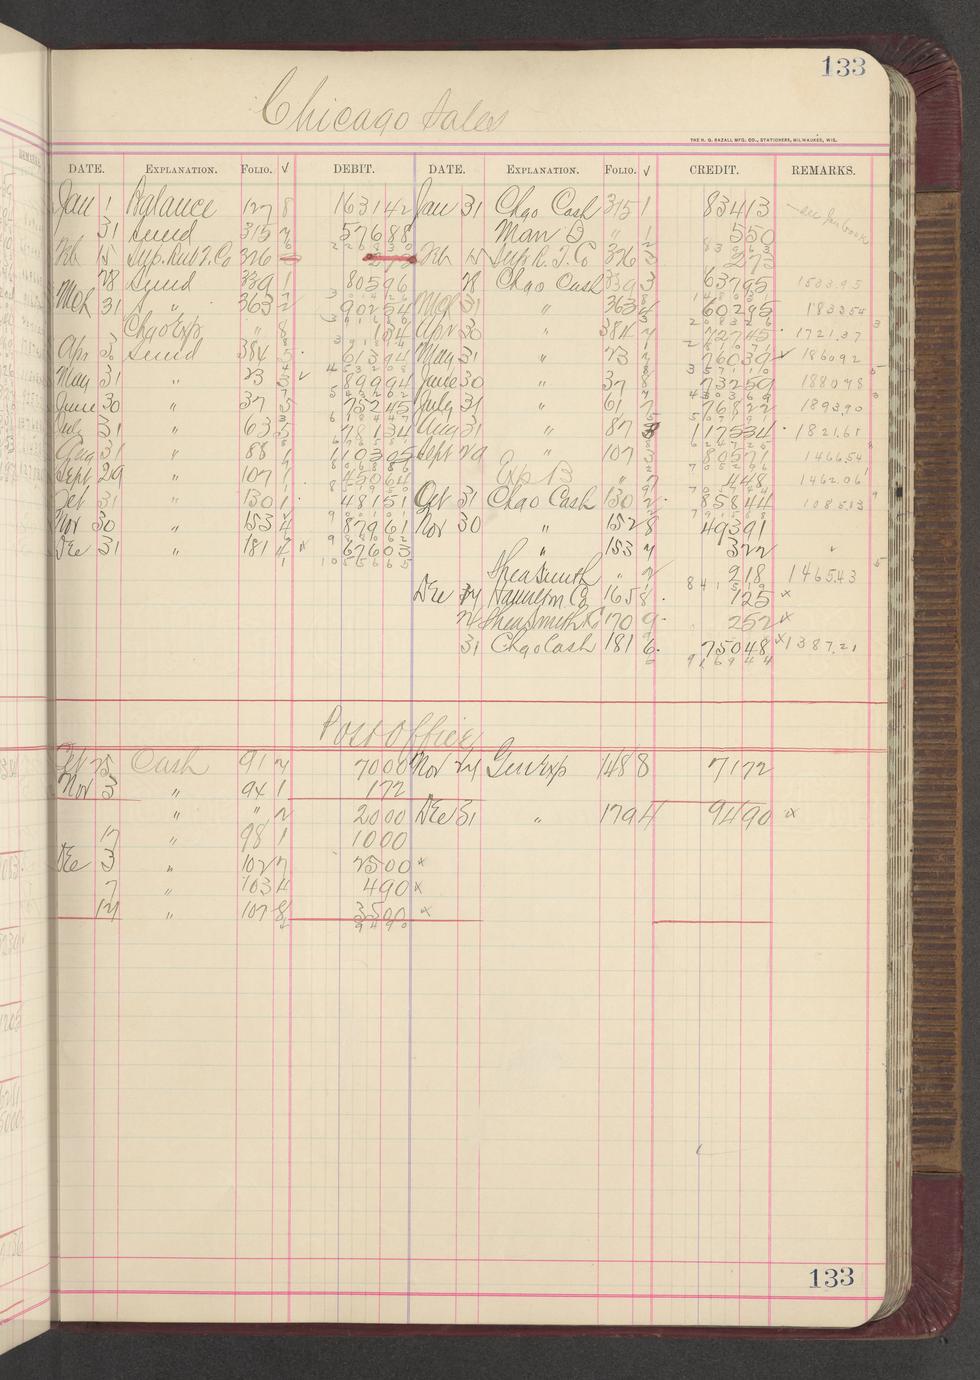 133
Chicago Sales
THE H. G. RAZALL MFG. CO., STATIONERS, MILWAUKEE, WIS.
DATE. EXPLANATION. FOLIO. √ DEBIT. DATE. EXPLANATION. FOLIO. √ CREDIT. REMARKS.
Jan 1 Balance 127 8 163142 Jan 31 Chgo Cash 315 1 83413
31 Sund 315 57688 Man'd " 1 550
Feb 15 Sup. Rub. T. Co 326 273 Feb 15 Sup R. T. Co 326 273
28 Sund 339 1 80596 28 Chgo Cash 339 3 63795 1503.95
Mch 31 " 363 2 90254 Mch 31 " 363 60295 1833.54
Chgo Exp " 8 134 Apr 30 " 384 72745 1721.37
Apr 30 Sund 384 5 61394 May 31 " 23 76039 √ 1860.92
May 31 " 23 3 √ 89994 June 30 " 37 8 73259 1880.78
June 30 " 37 5 75245 July 31 " 61 7 76822 1893.90
July 31 " 63 5 78134 Aug 31 " 87 3 117534 1821.61
Aug 31 " 88 1 110305 Sept 29 " 107 3 80571 1466.54
Sept 29 " 107 1 45064 Exp B " 448 1462.06
Oct 31 " 130 1 48151 Oct 31 Chgo Cash 130 2 85844 1085.13
Nov 30 " 153 4 87961 Nov 30 " 152 8 49391
Dec 31 " 181 67603 " 153 322
1055665 Shea Smith " 2 218 1465.43
Dec 24 Hamilton 165 8 125 x
Shea Smith Co 170 9 252 x
31 Chgo Cash 181 6 75048 x 1387.21
916944
Post Office
Oct 25 Cash 91 7000 Nov 24 Gen Exp 148 8 7172
Nov 3 " 94 1 172
" " 2 2000 Dec 31 " 179 4 9490 x
17 " 98 1 1000
Dec 3 " 102 2500 x
7 " 103 4 490 x
" 107 8 3500 x
9490
133